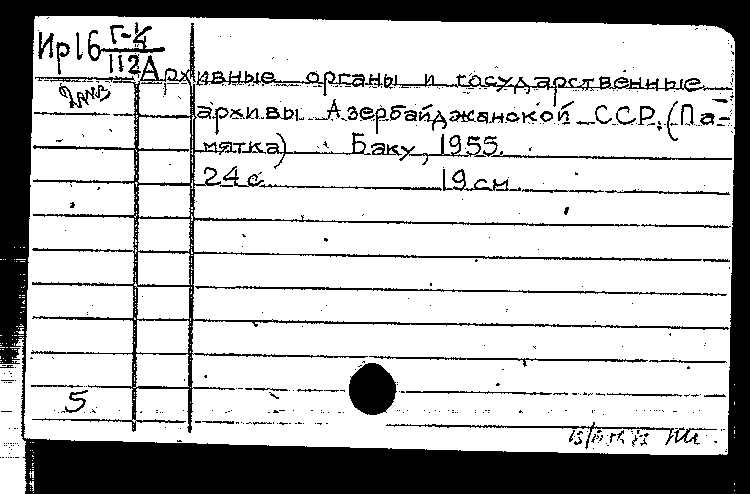 Ир16 Г-4/112А
Архивные органы и государственные
архивы Азербайджанской ССР. (Па-
мятка) Баку, 1955.
24 с. 19 см.
5